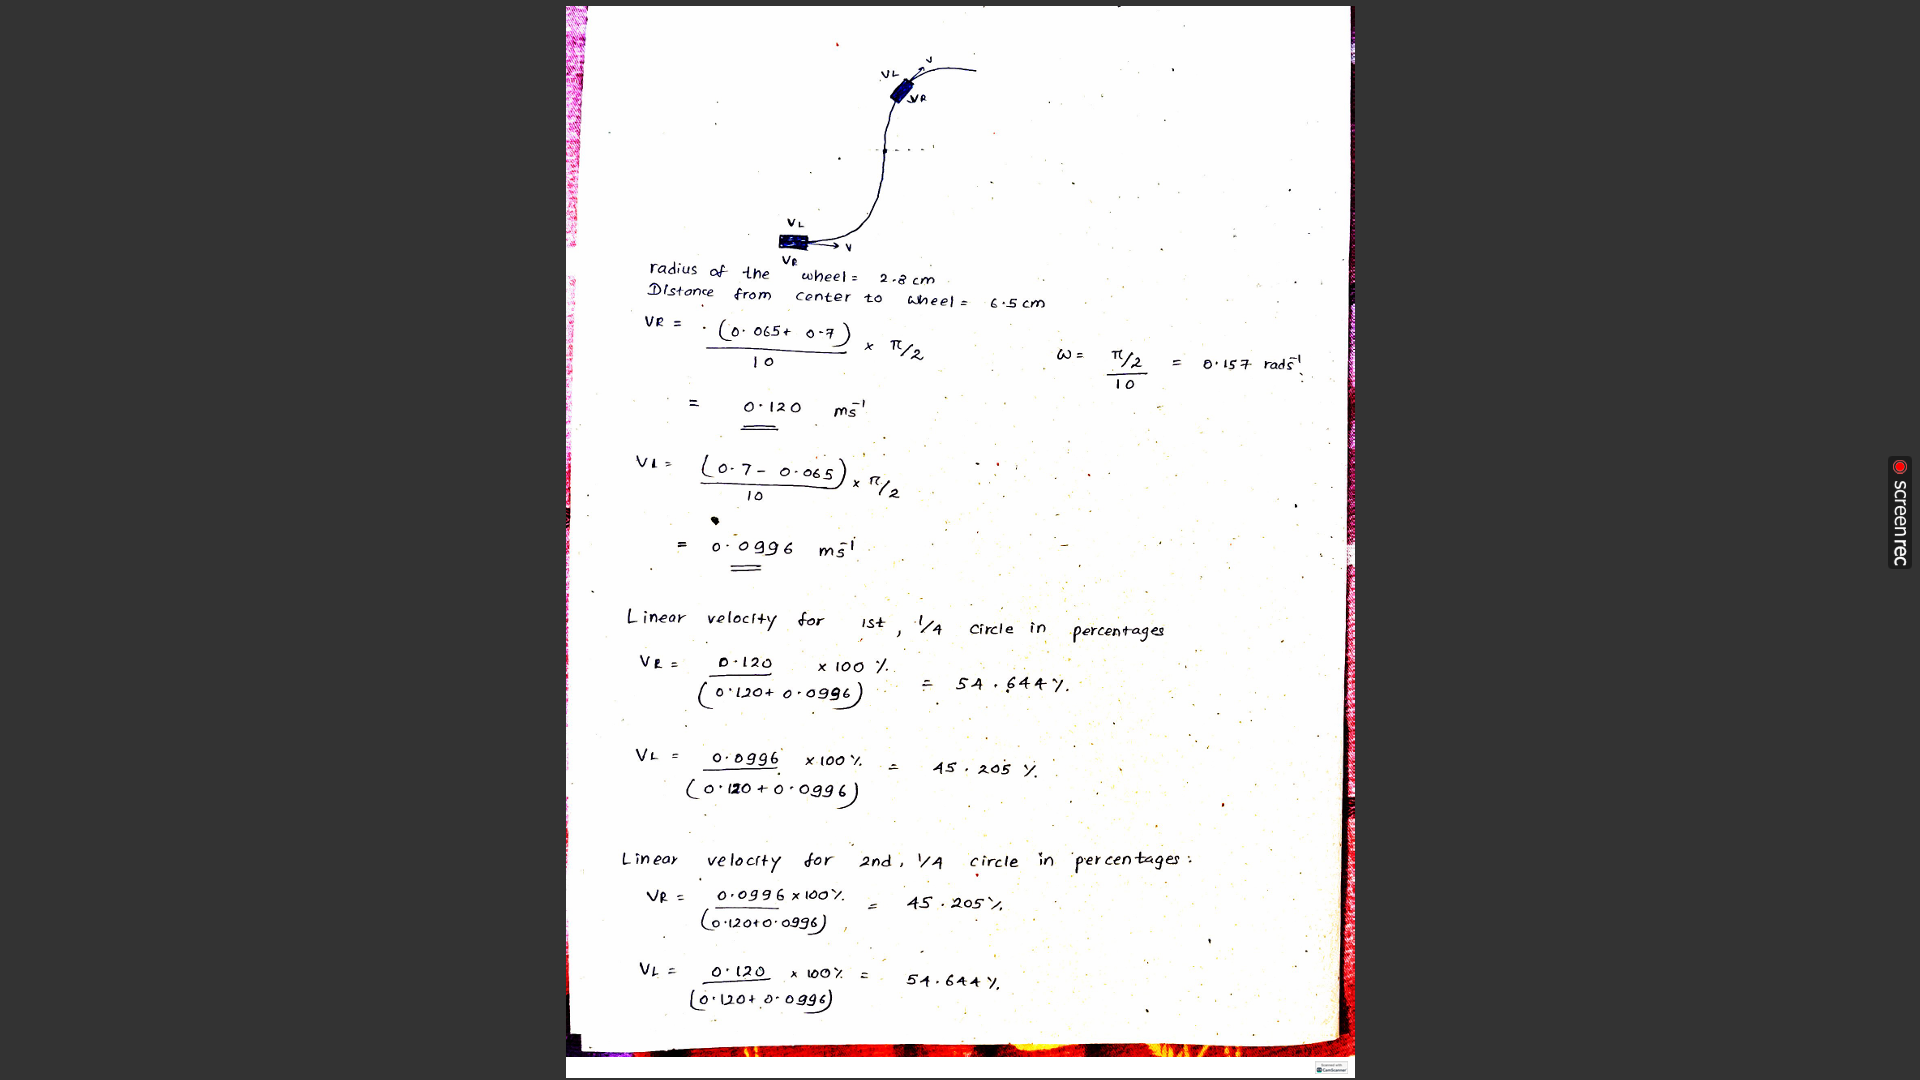 VL
V
VR
VL
V
VR
radius of the wheel = 2.8 cm
Distance from center to wheel = 6.5 cm
VR = (0.065 + 0.7) / 10 × π/2
ω = π/2 / 10 = 0.157 rads⁻¹
= 0.120 ms⁻¹
VL = (0.7 - 0.065) / 10 × π/2
= 0.0996 ms⁻¹
Linear velocity for 1st, 1/4 circle in percentages
VR = 0.120 / (0.120 + 0.0996) × 100 % = 54.644 %.
VL = 0.0996 / (0.120 + 0.0996) × 100 % = 45.205 %.
Linear velocity for 2nd, 1/4 circle in percentages :
VR = 0.0996 × 100 % / (0.120 + 0.0996) = 45.205 %.
VL = 0.120 / (0.120 + 0.0996) × 100 % = 54.644 %.
Scanned with
CamScanner
screenrec